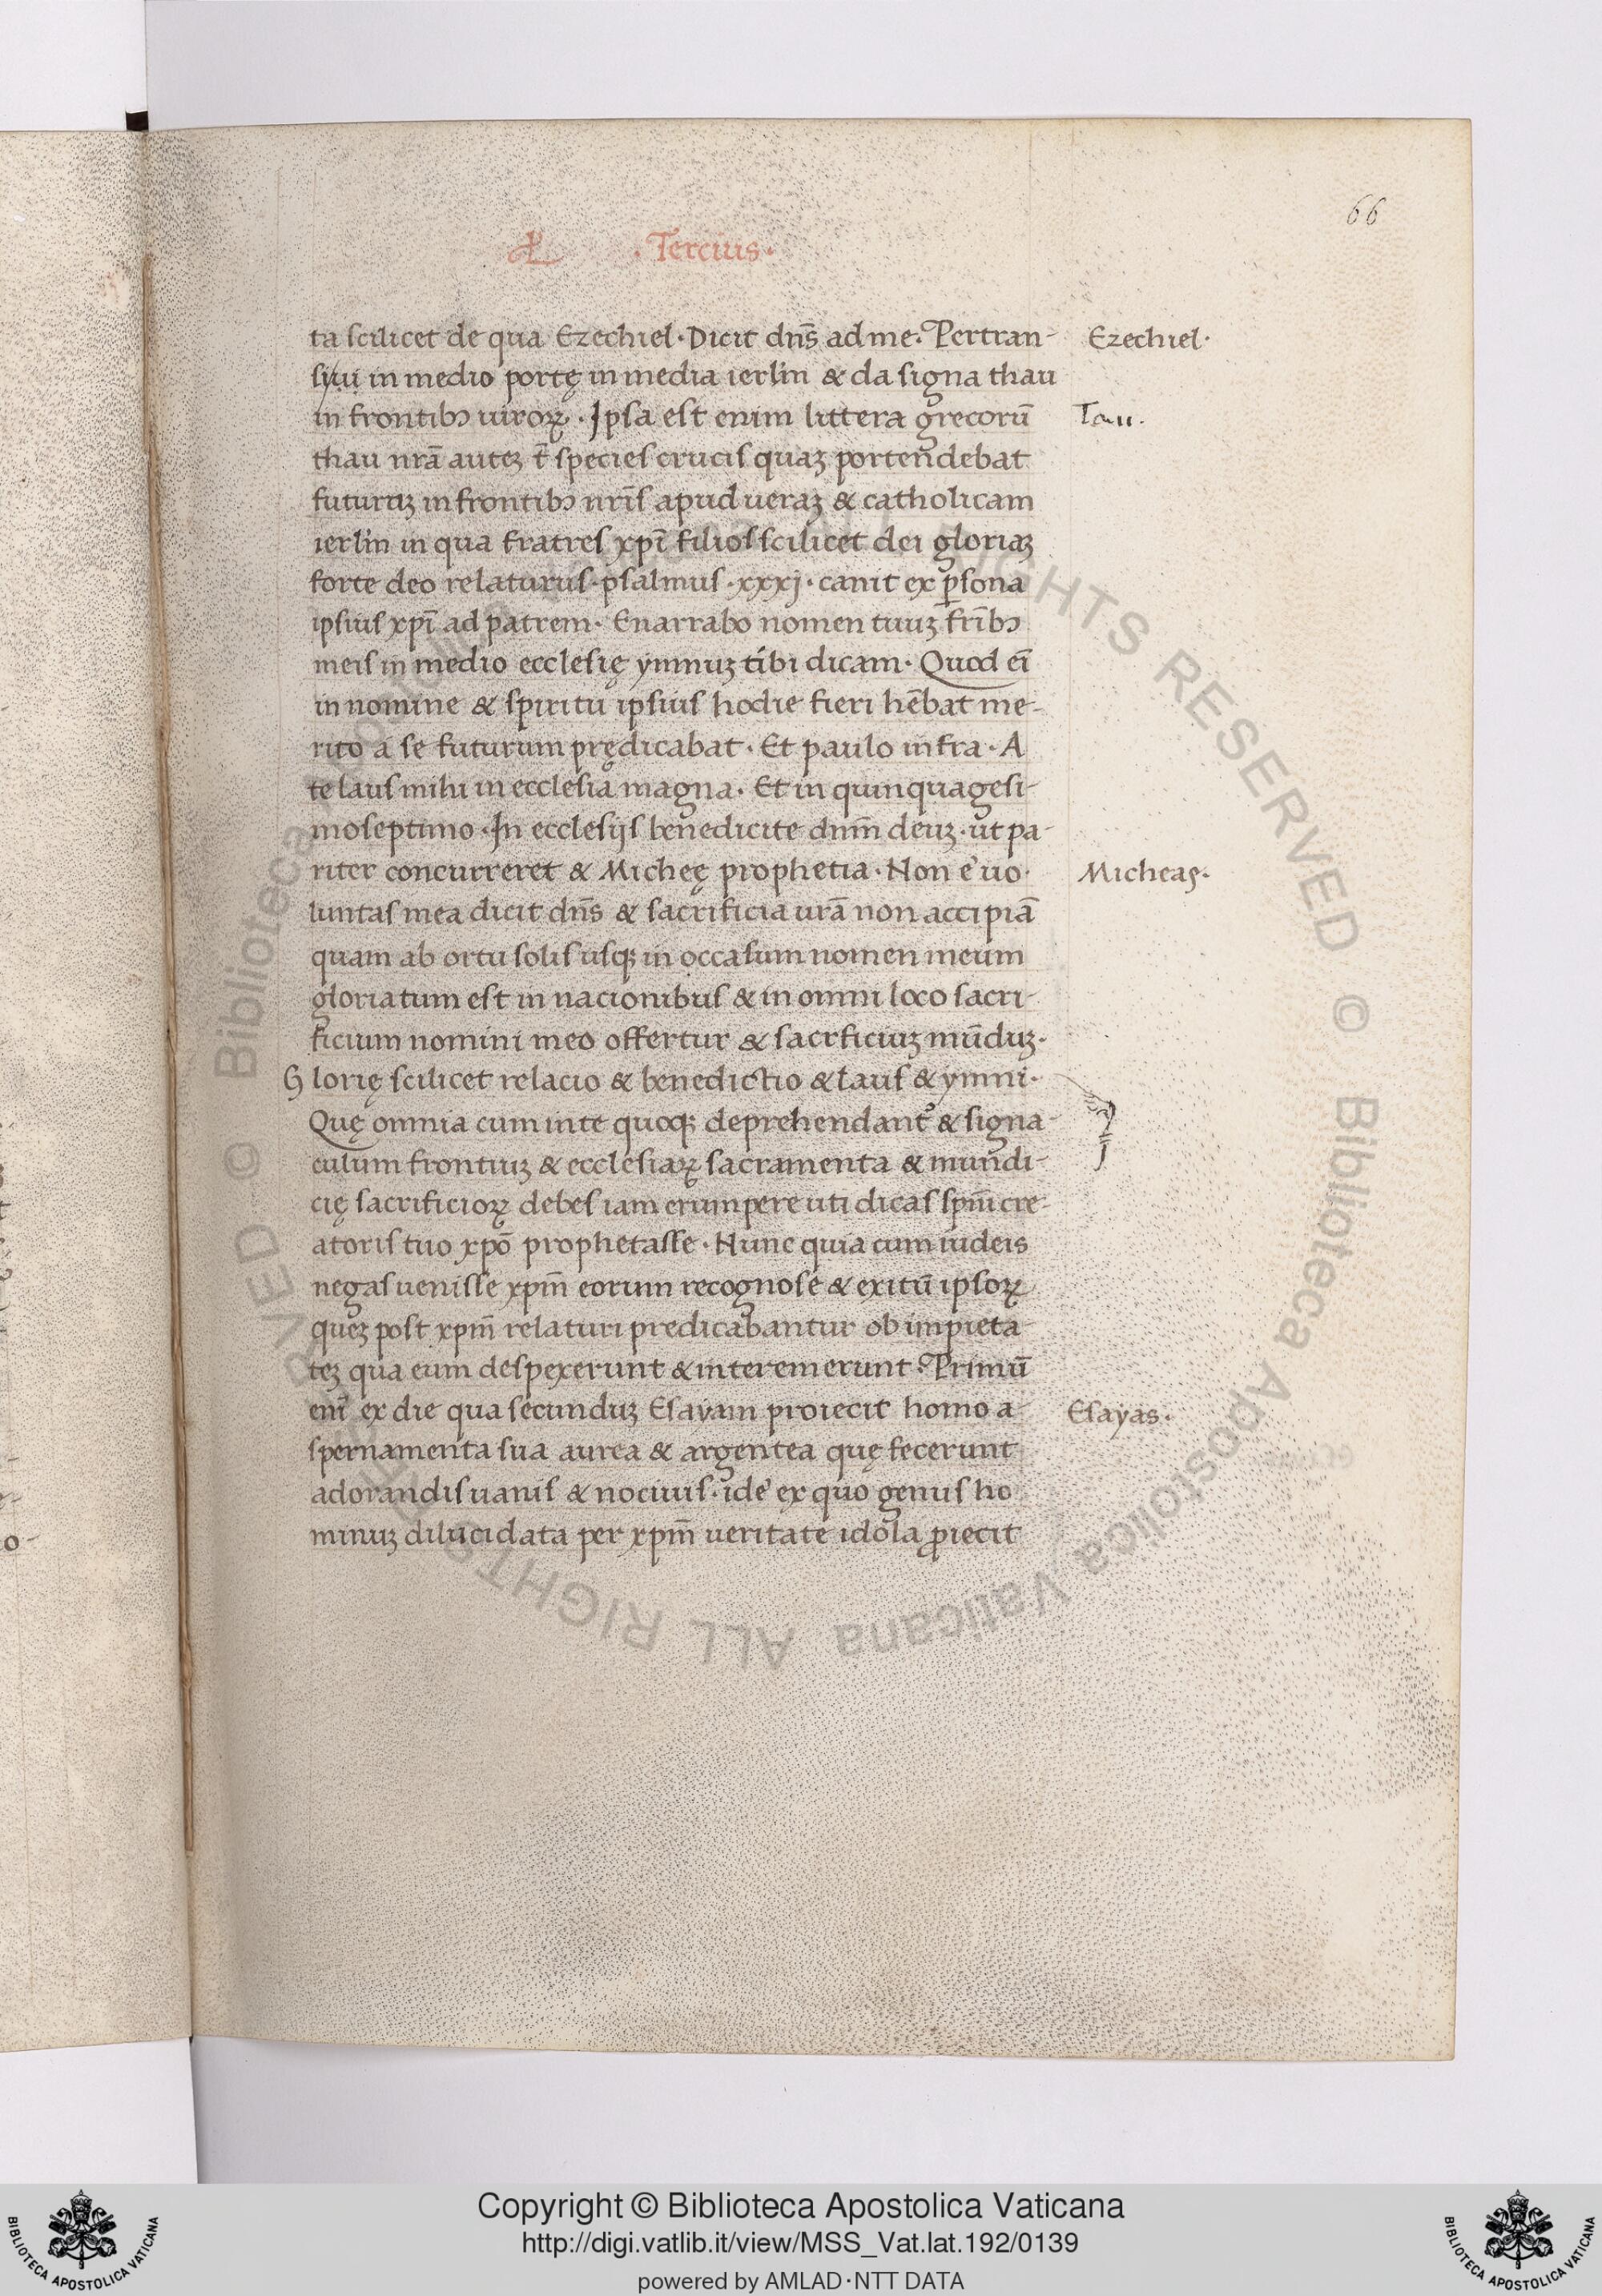 66
· Tercius ·
ta scilicet de qua Ezechiel · Dicit dn̄s ad me · Pertran-
Ezechiel ·
siui in medio portę in media ierl̄m & da signa thau
in frontibꝯ uiroꝝ · Ipsa est enim littera grecorū
Tau.
thau nr̄a auteꝫ t̄ species crucis quaꝫ portendebat
futuraꝫ in frontibꝯ nr̄is apud ueraꝫ & catholicam
ierl̄m in qua fratres xpī filios scilicet dei gloriaꝫ
forte deo relaturus · psalmus · xxxj · canit ex ꝑsona
ipsius xpī ad patrem · Enarrabo nomen tuuꝫ fr̄ibꝯ
meis in medio ecclesię ymnuꝫ tibi dicam · Quod eī
in nomine & spiritu ipsius hodie fieri hēbat me-
rito a se futurum prędicabat · Et paulo infra · A
te laus mihi in ecclesia magna · Et in quinquagesi-
moseptimo · In ecclesijs benedicite dnm̄ deuꝫ · ut pa-
riter concurreret & Micheę prophetia · Non ē uo-
Micheas ·
luntas mea dicit dn̄s & sacrificia ur̄a non accipiā
quam ab ortu solis usqꝫ in occasum nomen meum
gloriatum est in nacionibus & in omni loco sacri-
ficium nomini meo offertur & sacrficiuꝫ mūduꝫ ·
Glorię scilicet relacio & benedictio & laus & ymni ·
Quę omnia cum in te quoqꝫ deprehendant᷑ & signa-
culum frontiuꝫ & ecclesiaꝝ sacramenta & mundi-
cię sacrificioꝝ debes iam erumpere uti dicas spm̄ cre-
atoris tuo xpō prophetasse · Nunc quia cum iudeis
negas uenisse xpm̄ eorum recognosē & exitū ipsoꝝ
queꝫ post xpm̄ relaturi predicabantur ob impieta
teꝫ qua eum despexerunt & interemerunt · Primū
enī ex die qua secunduꝫ Esayam proiecit homo a-
Esayas ·
spernamenta sua aurea & argentea quę fecerunt
adorandis uanis & nociuis · id ē ex quo genus ho
minuꝫ dilucidata per xpm̄ ueritate idola ꝓiecit
Copyright © Biblioteca Apostolica Vaticana
http://digi.vatlib.it/view/MSS_Vat.lat.192/0139
powered by AMLAD·NTT DATA